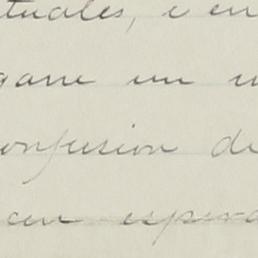 tuales, i en
gane un
onfusion de
cen espera